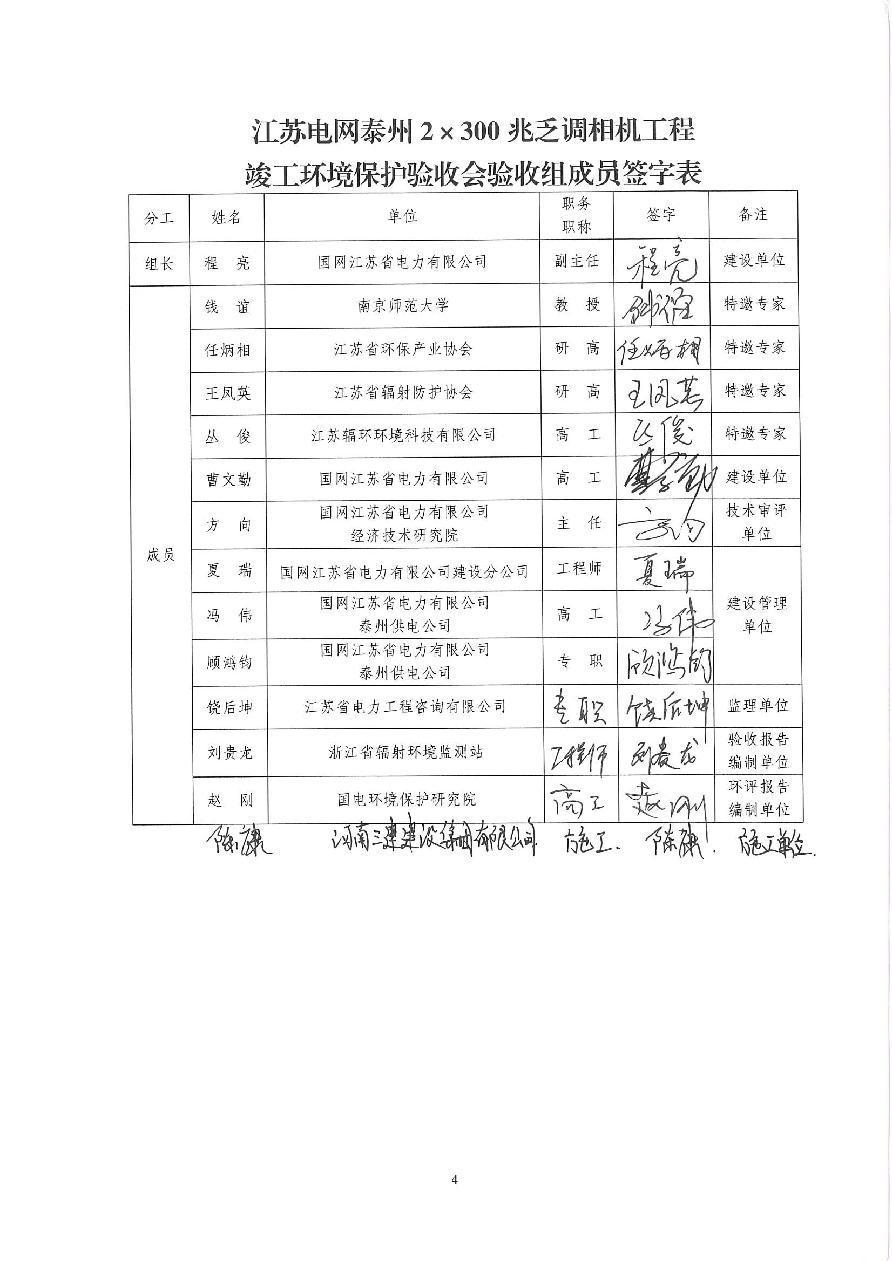 江苏电网泰州 2×300 兆乏调相机工程
竣工环境保护验收会验收组成员签字表
分工 姓名 单位 职务职称 签字 备注
组长 程亮 国网江苏省电力有限公司 副主任 程亮 建设单位
成员
钱谊 南京师范大学 教授 特邀专家
任炳相 江苏省环保产业协会 研高 任炳相 特邀专家
王凤英 江苏省辐射防护协会 研高 王凤英 特邀专家
丛俊 江苏辐环环境科技有限公司 高工 丛俊 特邀专家
曹文勤 国网江苏省电力有限公司 高工 曹文勤 建设单位
方向 国网江苏省电力有限公司 主任 方向 技术审评
经济技术研究院 单位
夏瑞 国网江苏省电力有限公司建设分公司 工程师 夏瑞
冯伟 国网江苏省电力有限公司 高工 冯伟 建设管理
泰州供电公司 单位
顾鸿钧 国网江苏省电力有限公司 专职 顾鸿钧
泰州供电公司
饶后坤 江苏省电力工程咨询有限公司 专职 饶后坤 监理单位
刘贵龙 浙江省辐射环境监测站 工程师 刘贵龙 验收报告
编制单位
赵刚 国电环境保护研究院 高工 赵刚 环评报告
编制单位
河南三建建设集团有限公司 施工. 施工单位.
4